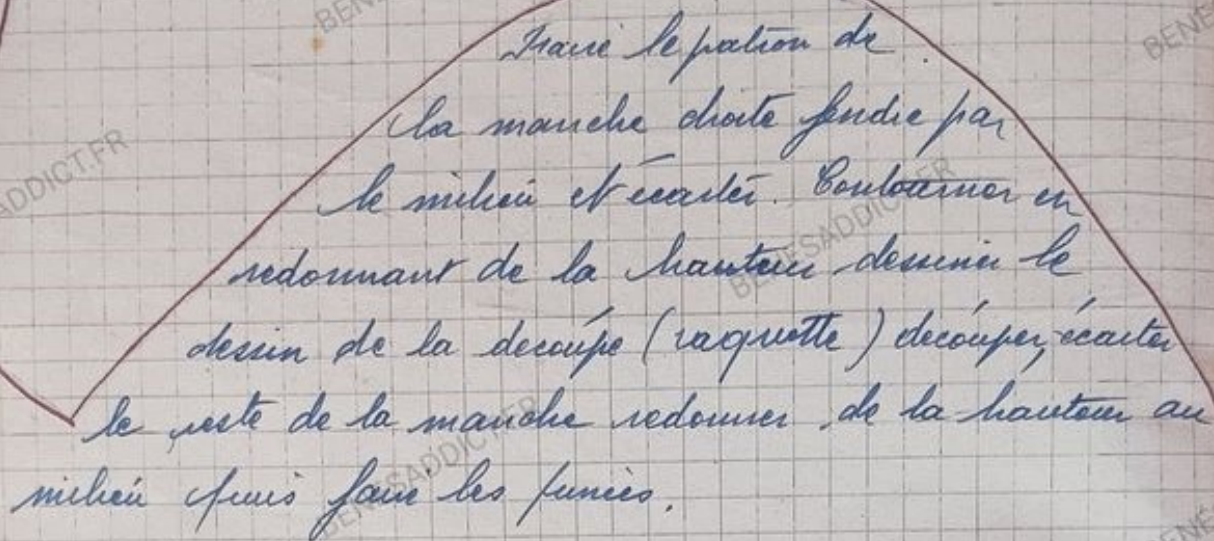 Tracé le patron de
la manche droite fendre par
le milieu et écarter. Contourner en
redonnant de la hauteur dessiner le
dessin de la découpe (raquette) découper, écarter
le reste de la manche redonner de la hauteur au
milieu puis faire les pinces.